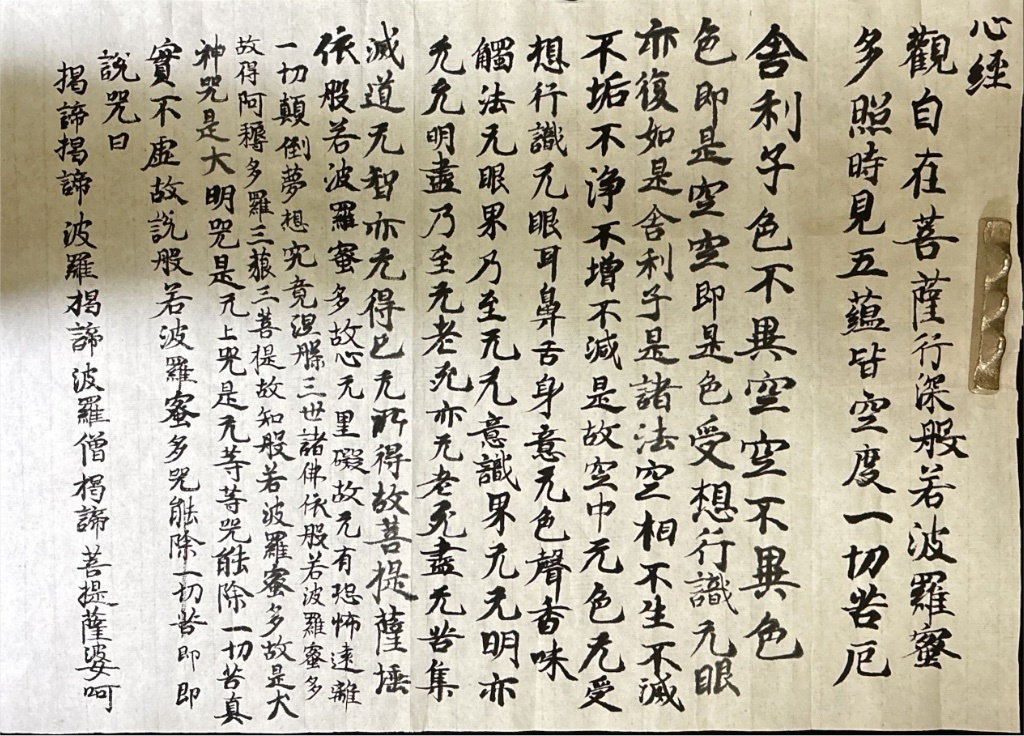 心經
觀自在菩薩行深般若波羅蜜
多照時見五蘊皆空度一切苦厄
舍利子色不異空空不異色
色即是空空即是色受想行識无眼
亦復如是舍利子是諸法空相不生不滅
不垢不淨不增不減是故空中无色无受
想行識无眼耳鼻舌身意无色聲香味
觸法无眼果乃至无无意識果无无明亦
无无明盡乃至无老死亦无老死盡无苦集
滅道无智亦无得已无所得故菩提薩埵
依般若波羅蜜多故心无里礙故无有恐怖遠離
一切顛倒夢想究竟涅槃三世諸佛依般若波羅蜜多
故得阿耨多羅三藐三菩提故知般若波羅蜜多故是大
神咒是大明咒是无上咒是无等等咒能除一切苦真
實不虛故說般若波羅蜜多咒能除一切苦即即
說咒曰
揭諦揭諦波羅揭諦波羅僧揭諦菩提薩婆呵